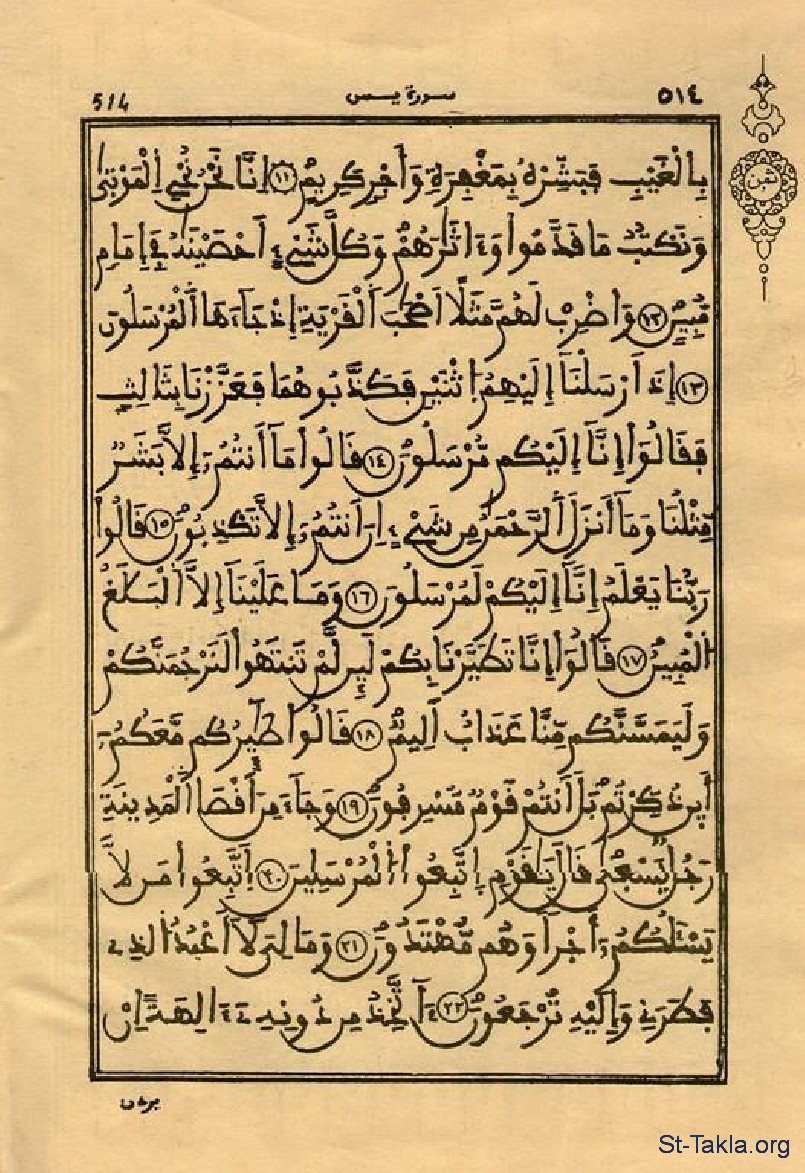 ٥١٤ سورة يس 514
بِالْغَيْبِ فَبَشِّرْهُ بِمَغْفِرَةٍ وَأَجْرٍ كَرِيمٍ ١١ إِنَّا نَحْنُ نُحْيِ الْمَوْتَىٰ
ثمن
وَنَكْتُبُ مَا قَدَّمُوا وَءَاثَارَهُمْ وَكُلَّ شَيْءٍ أَحْصَيْنَٰهُ فِي إِمَامٍ
مُّبِينٍ ١٢ وَاضْرِبْ لَهُم مَّثَلًا أَصْحَٰبَ الْقَرْيَةِ إِذْ جَآءَهَا الْمُرْسَلُونَ
١٣ إِذَ اَرْسَلْنَآ إِلَيْهِمُ اثْنَيْنِ فَكَذَّبُوهُمَا فَعَزَّزْنَا بِثَالِثٍ
فَقَالُوٓا إِنَّآ إِلَيْكُم مُّرْسَلُونَ ١٤ قَالُوا مَآ أَنتُمُۥٓ إِلَّا بَشَرٌ
مِّثْلُنَا وَمَآ أَنزَلَ الرَّحْمَٰنُ مِن شَيْءٍ اِنَ اَنتُمُۥٓ إِلَّا تَكْذِبُونَ ١٥ قَالُوا
رَبُّنَا يَعْلَمُ إِنَّآ إِلَيْكُمْ لَمُرْسَلُونَ ١٦ وَمَا عَلَيْنَآ إِلَّا الْبَلَٰغُ
الْمُبِينُ ١٧ قَالُوٓا إِنَّا تَطَيَّرْنَا بِكُمْ لَئِن لَّمْ تَنتَهُوا لَنَرْجُمَنَّكُمْ
وَلَيَمَسَّنَّكُم مِّنَّا عَذَابٌ اَلِيمٌ ١٨ قَالُوا طَٰٓئِرُكُم مَّعَكُمُۥٓ
أَئِن ذُكِّرْتُم بَلَ اَنتُمْ قَوْمٌ مُّسْرِفُونَ ١٩ وَجَآءَ مِنَ اَقْصَا الْمَدِينَةِ
رَجُلٌ يَسْعَىٰ قَالَ يَٰقَوْمِ اِتَّبِعُوا الْمُرْسَلِينَ ٢٠ اَتَّبِعُوا مَن لَّا
يَسْـَٔلُكُمُۥٓ أَجْرًا وَهُم مُّهْتَدُونَ ٢١ وَمَا لِيَ لَآ أَعْبُدُ الذِي
فَطَرَنِي وَإِلَيْهِ تُرْجَعُونَ ٢٢ ءَآتَّخِذُ مِن دُونِهِۦٓ ءَالِهَةً اِنْ
يردن
St-Takla.org